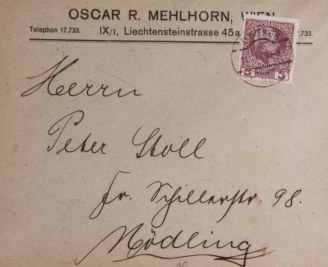 OSCAR R. MEHLHORN, WIEN
Telephon 17.733. IX/1, Liechtensteinstrasse 45a 17.733.
3 3
Herrn
Peter Stoll
Fr. Schillerstr. 98.
Mödling